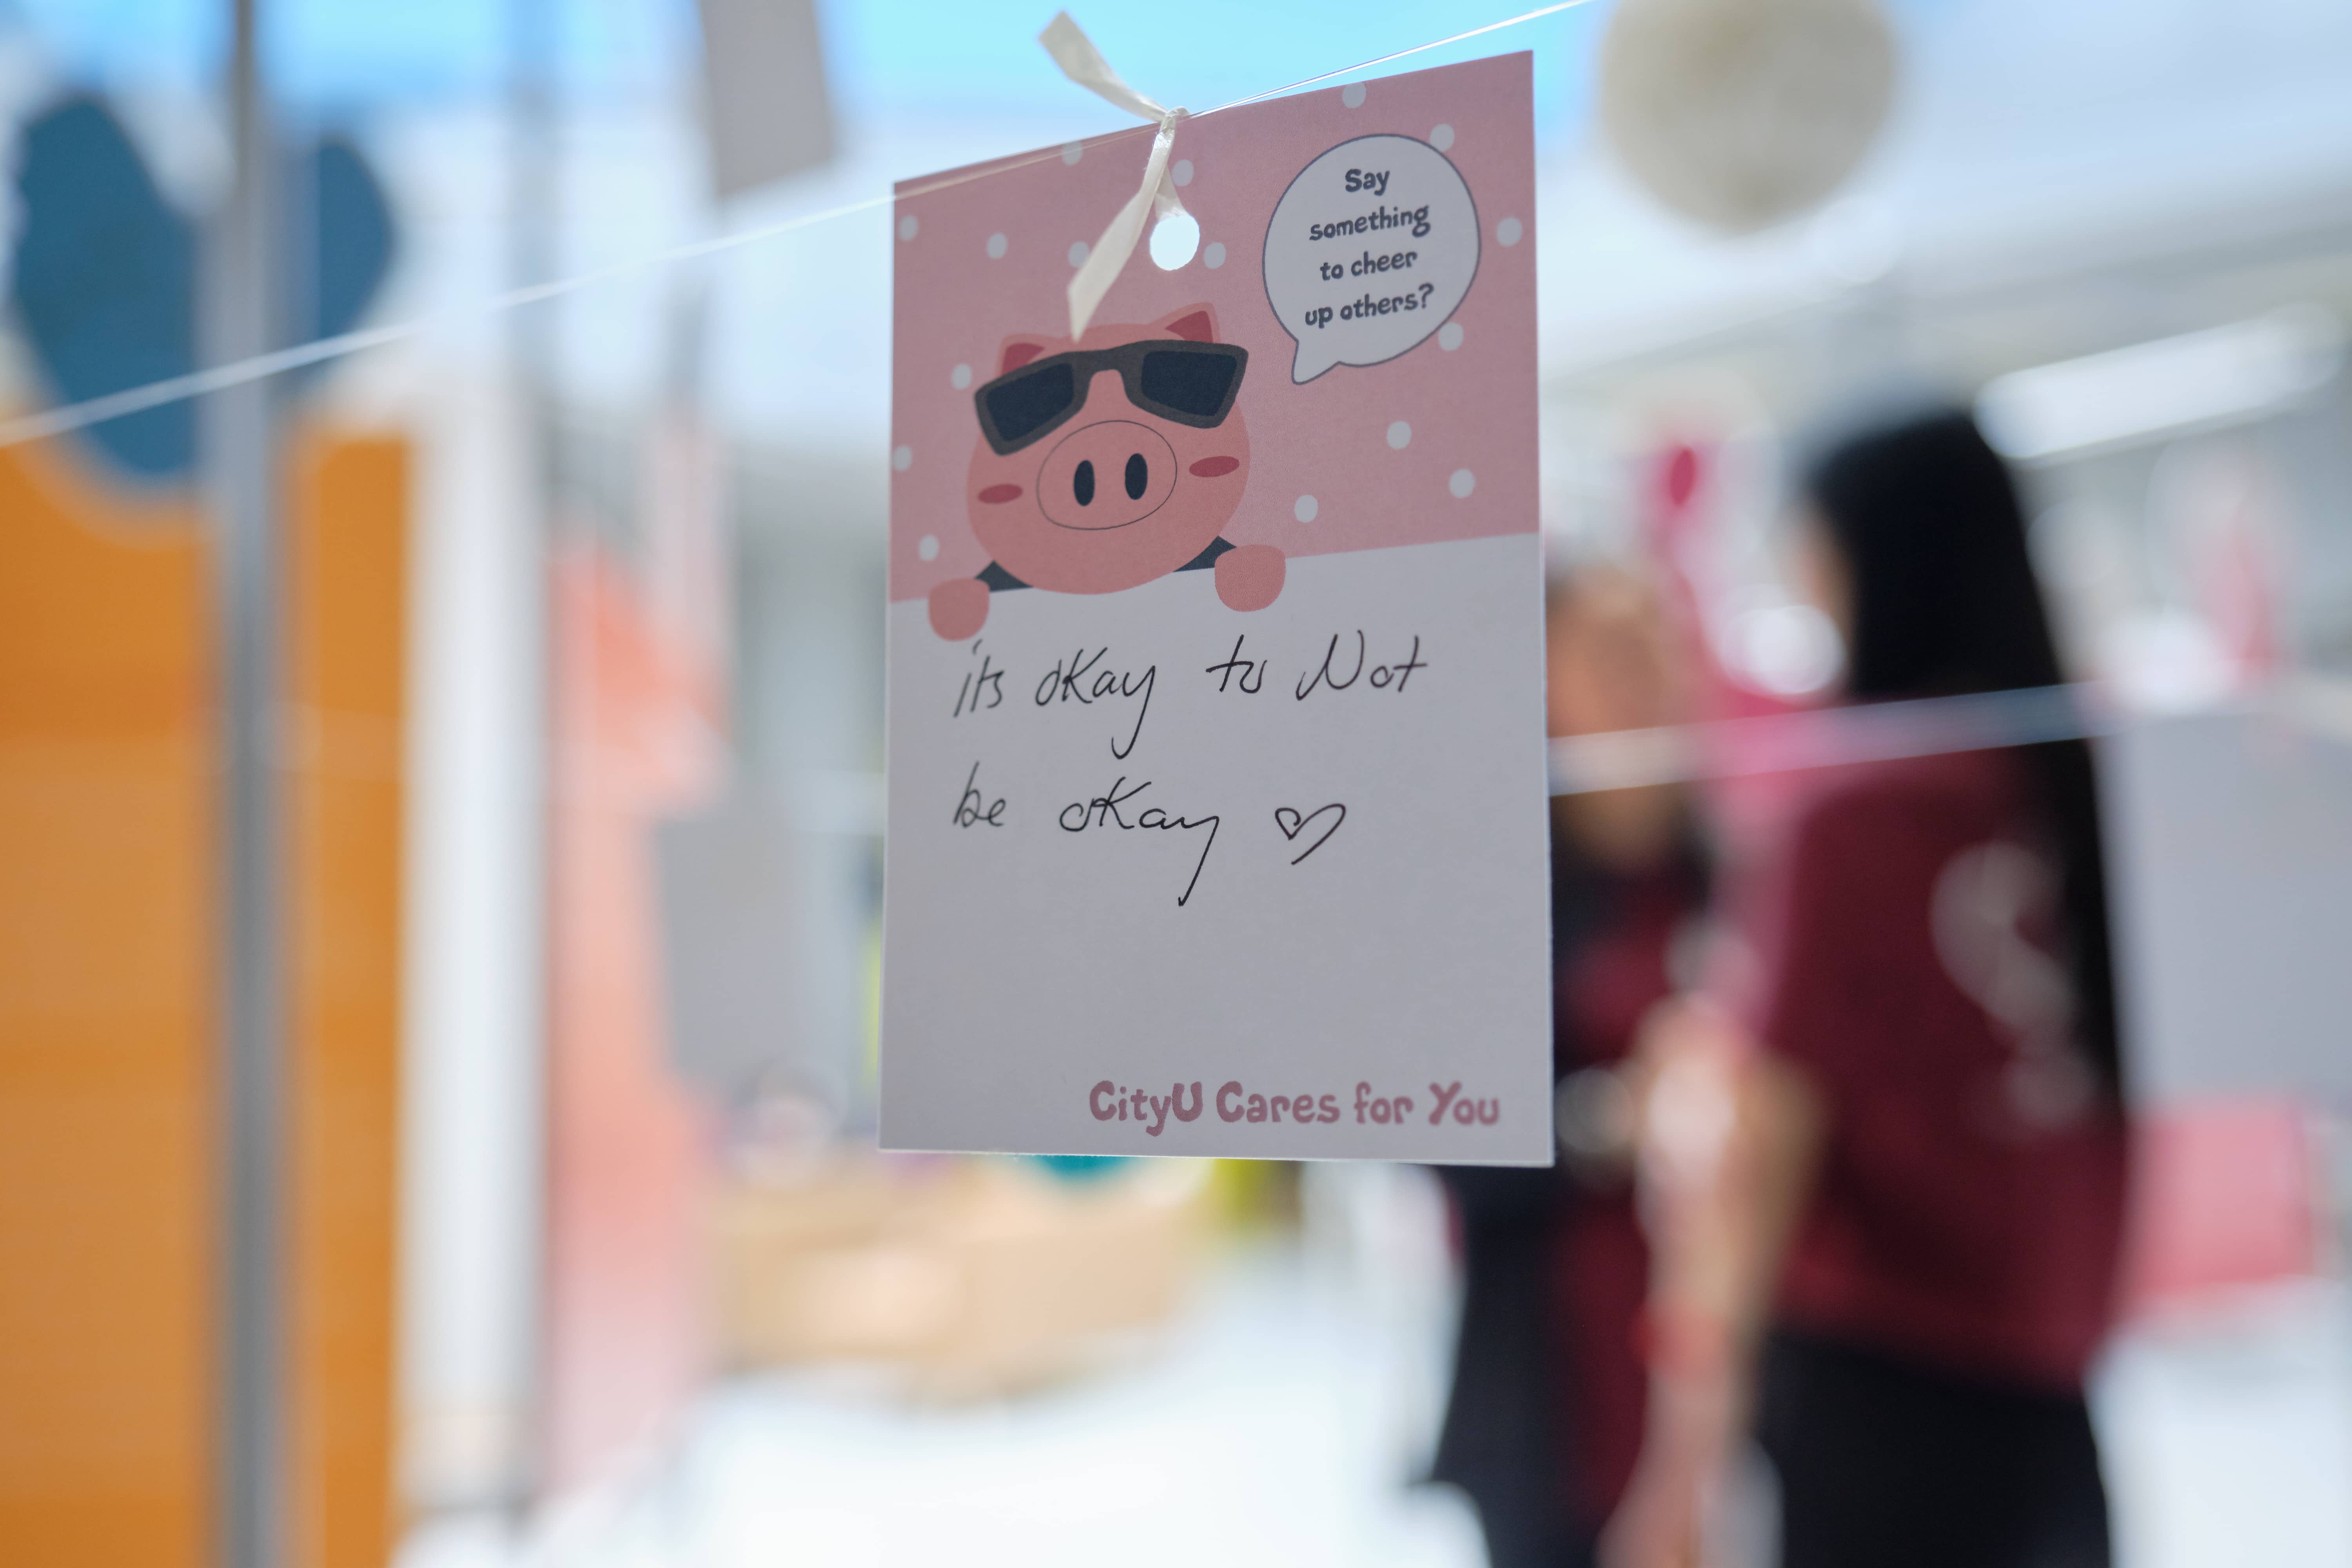 Say
something
to cheer
up others?
its okay to Not
be okay ♡
CityU Cares for You